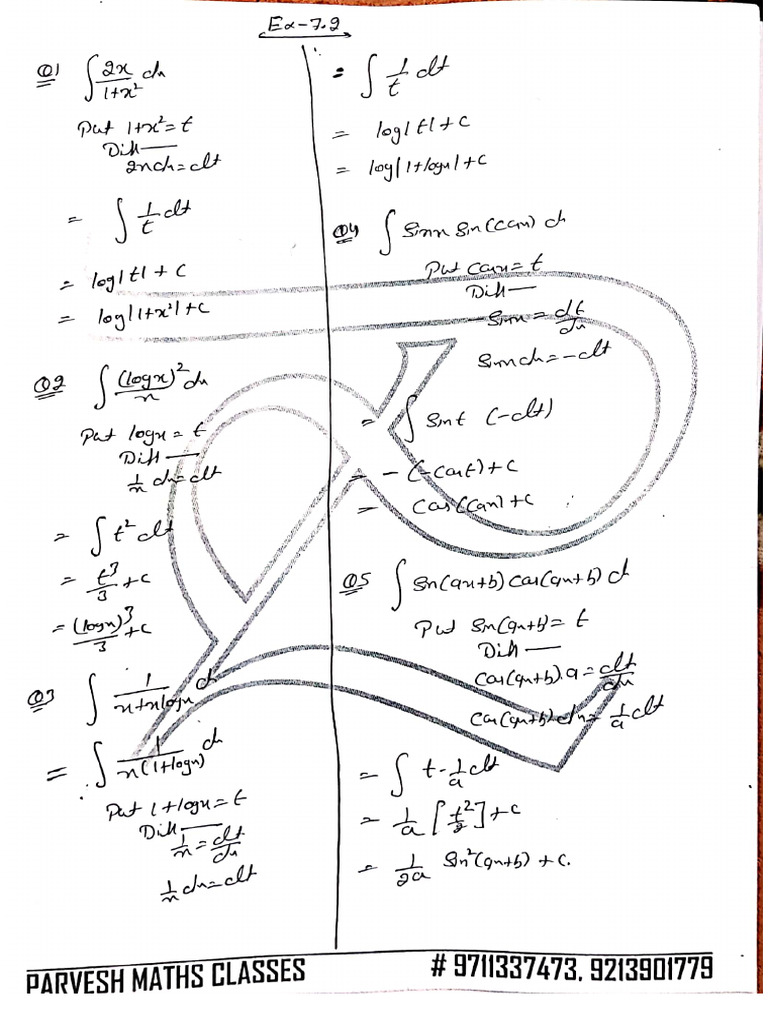 Ex-7.2
Q1 ∫ 2x/(1+x²) dx
Put 1+x²=t
Diff —
2xdx=dt
= ∫ 1/t dt
= log|t| + c
= log|1+x²|+c
Q2 ∫ (logx)²/x dx
Put logx = t
Diff —
1/x dx=dt
= ∫ t² dt
= t³/3 +c
= (logx)³/3 +c
Q3 ∫ 1/(x+xlogx) dx
= ∫ 1/(x(1+logx)) dx
Put 1+logx=t
Diff —
1/x = dt/dx
1/x dx=dt
= ∫ 1/t dt
= log|t|+c
= log|1+logx|+c
Q4 ∫ sinx sin(cosx) dx
Put cosx=t
Diff —
-sinx = dt/dx
sinxdx=-dt
= ∫ sint (-dt)
= -(-cost)+c
= cos(cosx)+c
Q5 ∫ sin(ax+b) cos(ax+b) dx
Put sin(ax+b)= t
Diff —
cos(ax+b).a = dt/dx
cos(ax+b)dx= 1/a dt
= ∫ t·1/a dt
= 1/a [t²/2]+c
= 1/2a sin²(ax+b) +c.
PARVESH MATHS CLASSES # 9711337473, 9213901779